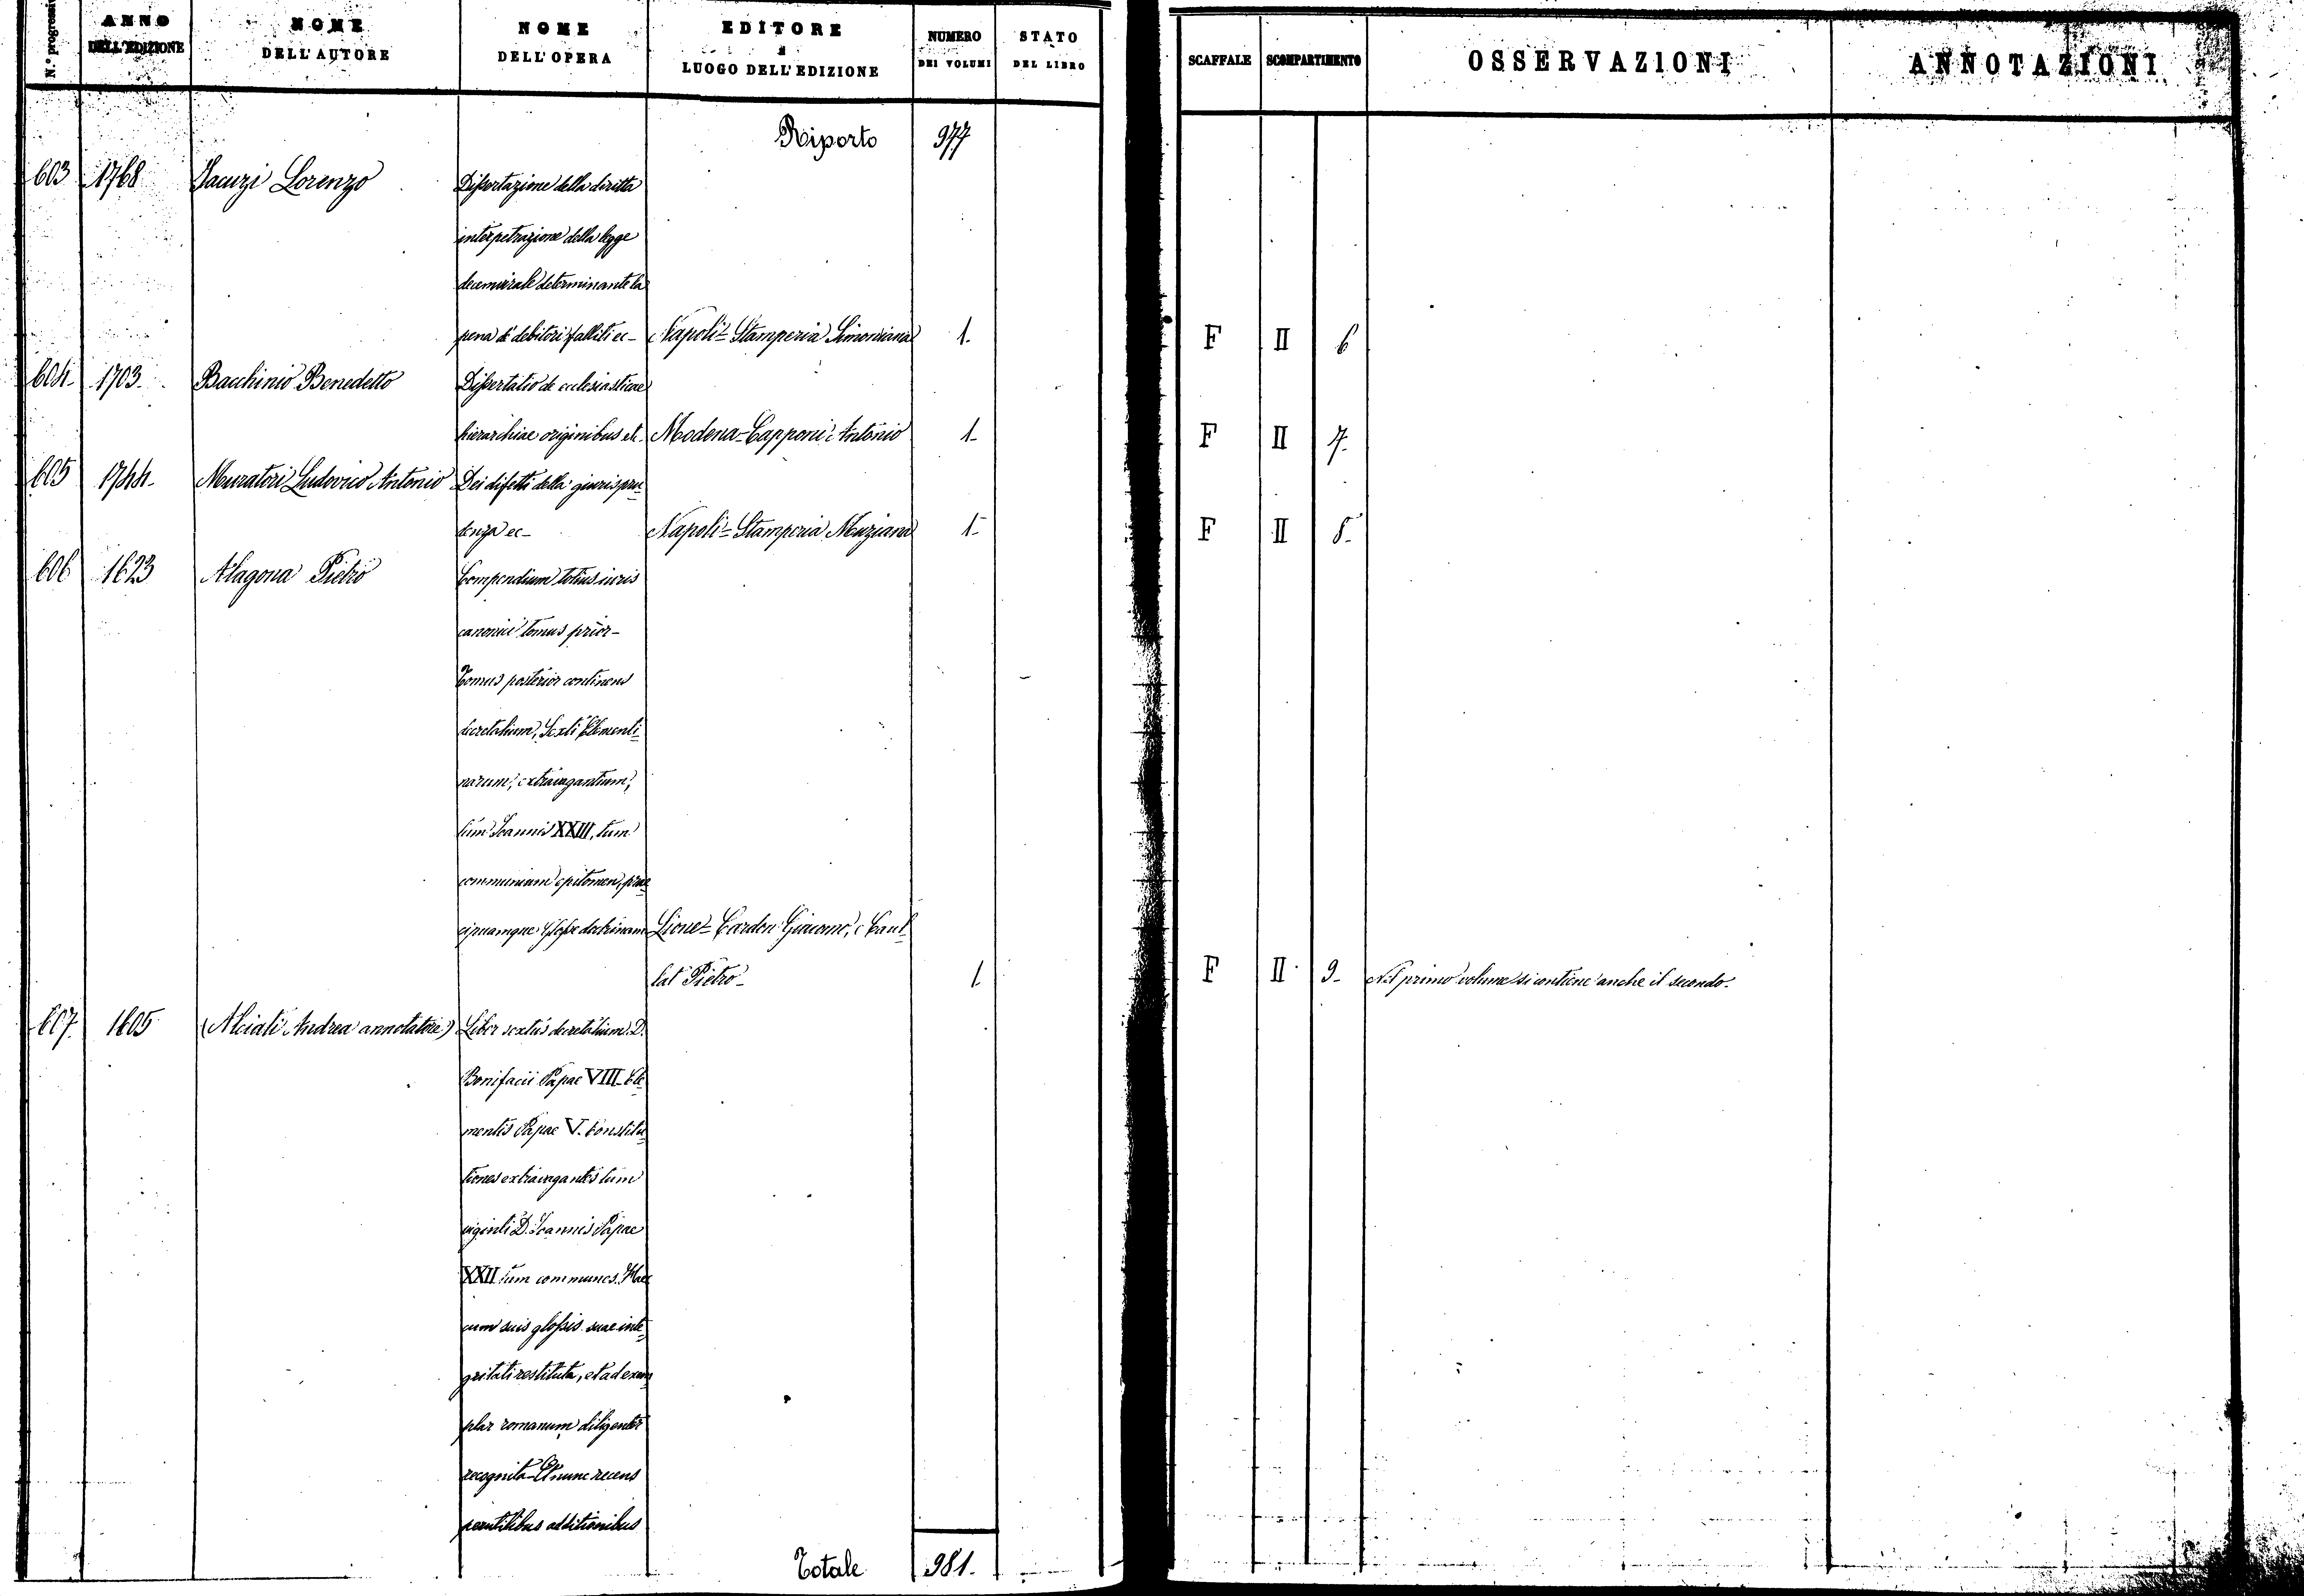 N.º progressivo ANNO DELL'EDIZIONE NOME DELL'AUTORE NOME DELL'OPERA EDITORE e LUOGO DELL'EDIZIONE NUMERO DEI VOLUMI STATO DEL LIBRO SCAFFALE SCOMPARTIMENTO OSSERVAZIONI ANNOTAZIONI
Riporto 977
603 1768 Lorenzo Dissertazione della diritta
interpetrazione della legge
decemvirale determinante la
pena de' debitori falliti ec- Napoli- Stamperia Simoniana 1. F II 6
604- 1703. Bacchinio Benedetto Dissertatio de ecclesiasticae
hierarchiae originibus etc. Modena- Capponi Antonio 1- F II 7.
605 1744- Muratori Ludovico Antonio Dei difetti della giurispru-
denza ec- Napoli- Stamperia Muziana 1- F II 8-
606 1623 Alagona Pietro Compendium totius iuris
canonici tomus prior-
Tomus posterior continens
decretalium, Sexti Clementi-
narum, extravagantium,
tum Ioannis XXIII, tum
communium epitomen, prae-
cipuamque Glossae doctrinam Lione- Cardon Giacomo, e Cavel-
lat Pietro- 1 F II 9- Nel primo volume si contiene anche il secondo.
607. 1605 (Alciati Andrea annotatore) Liber sextus decretalium D.
Bonifacii Papae VIII- Cle-
mentis Papae V. Constitu-
tiones extravagantes tum
viginti D. Ioannis Papae
XXII tum communes. Haec
cum suis glossis suae inte-
gritati restituta, et ad exem-
plar romanum diligenter
recognita- Et nunc recens
perutilibus additionibus
Totale 981.